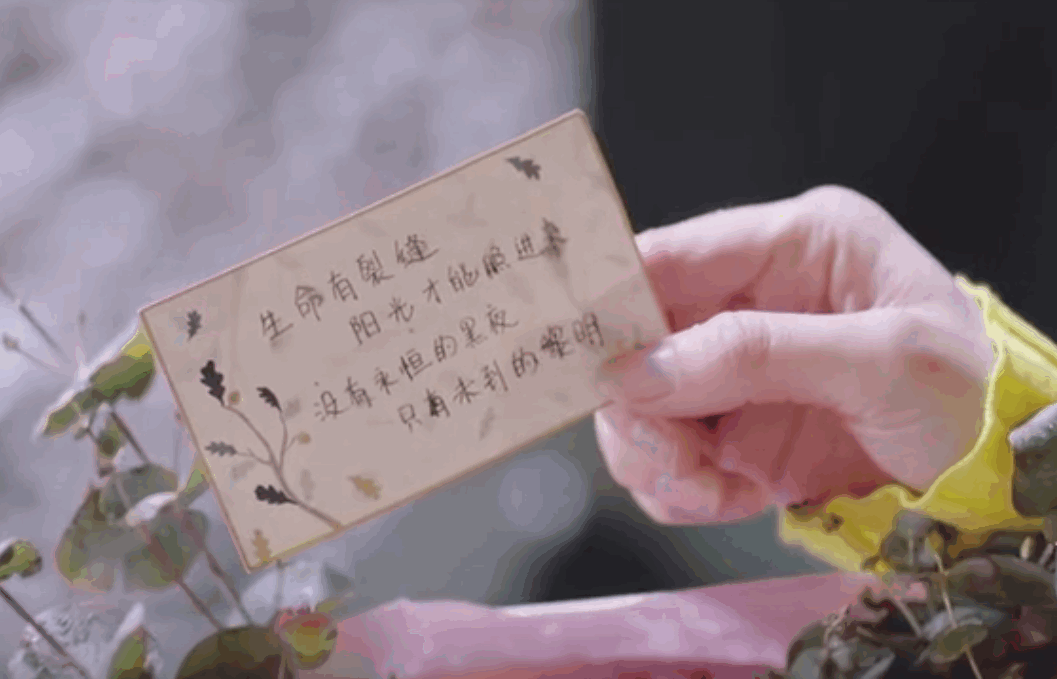 生命有裂缝
阳光才能照进来
没有永恒的黑夜
只有未到的黎明